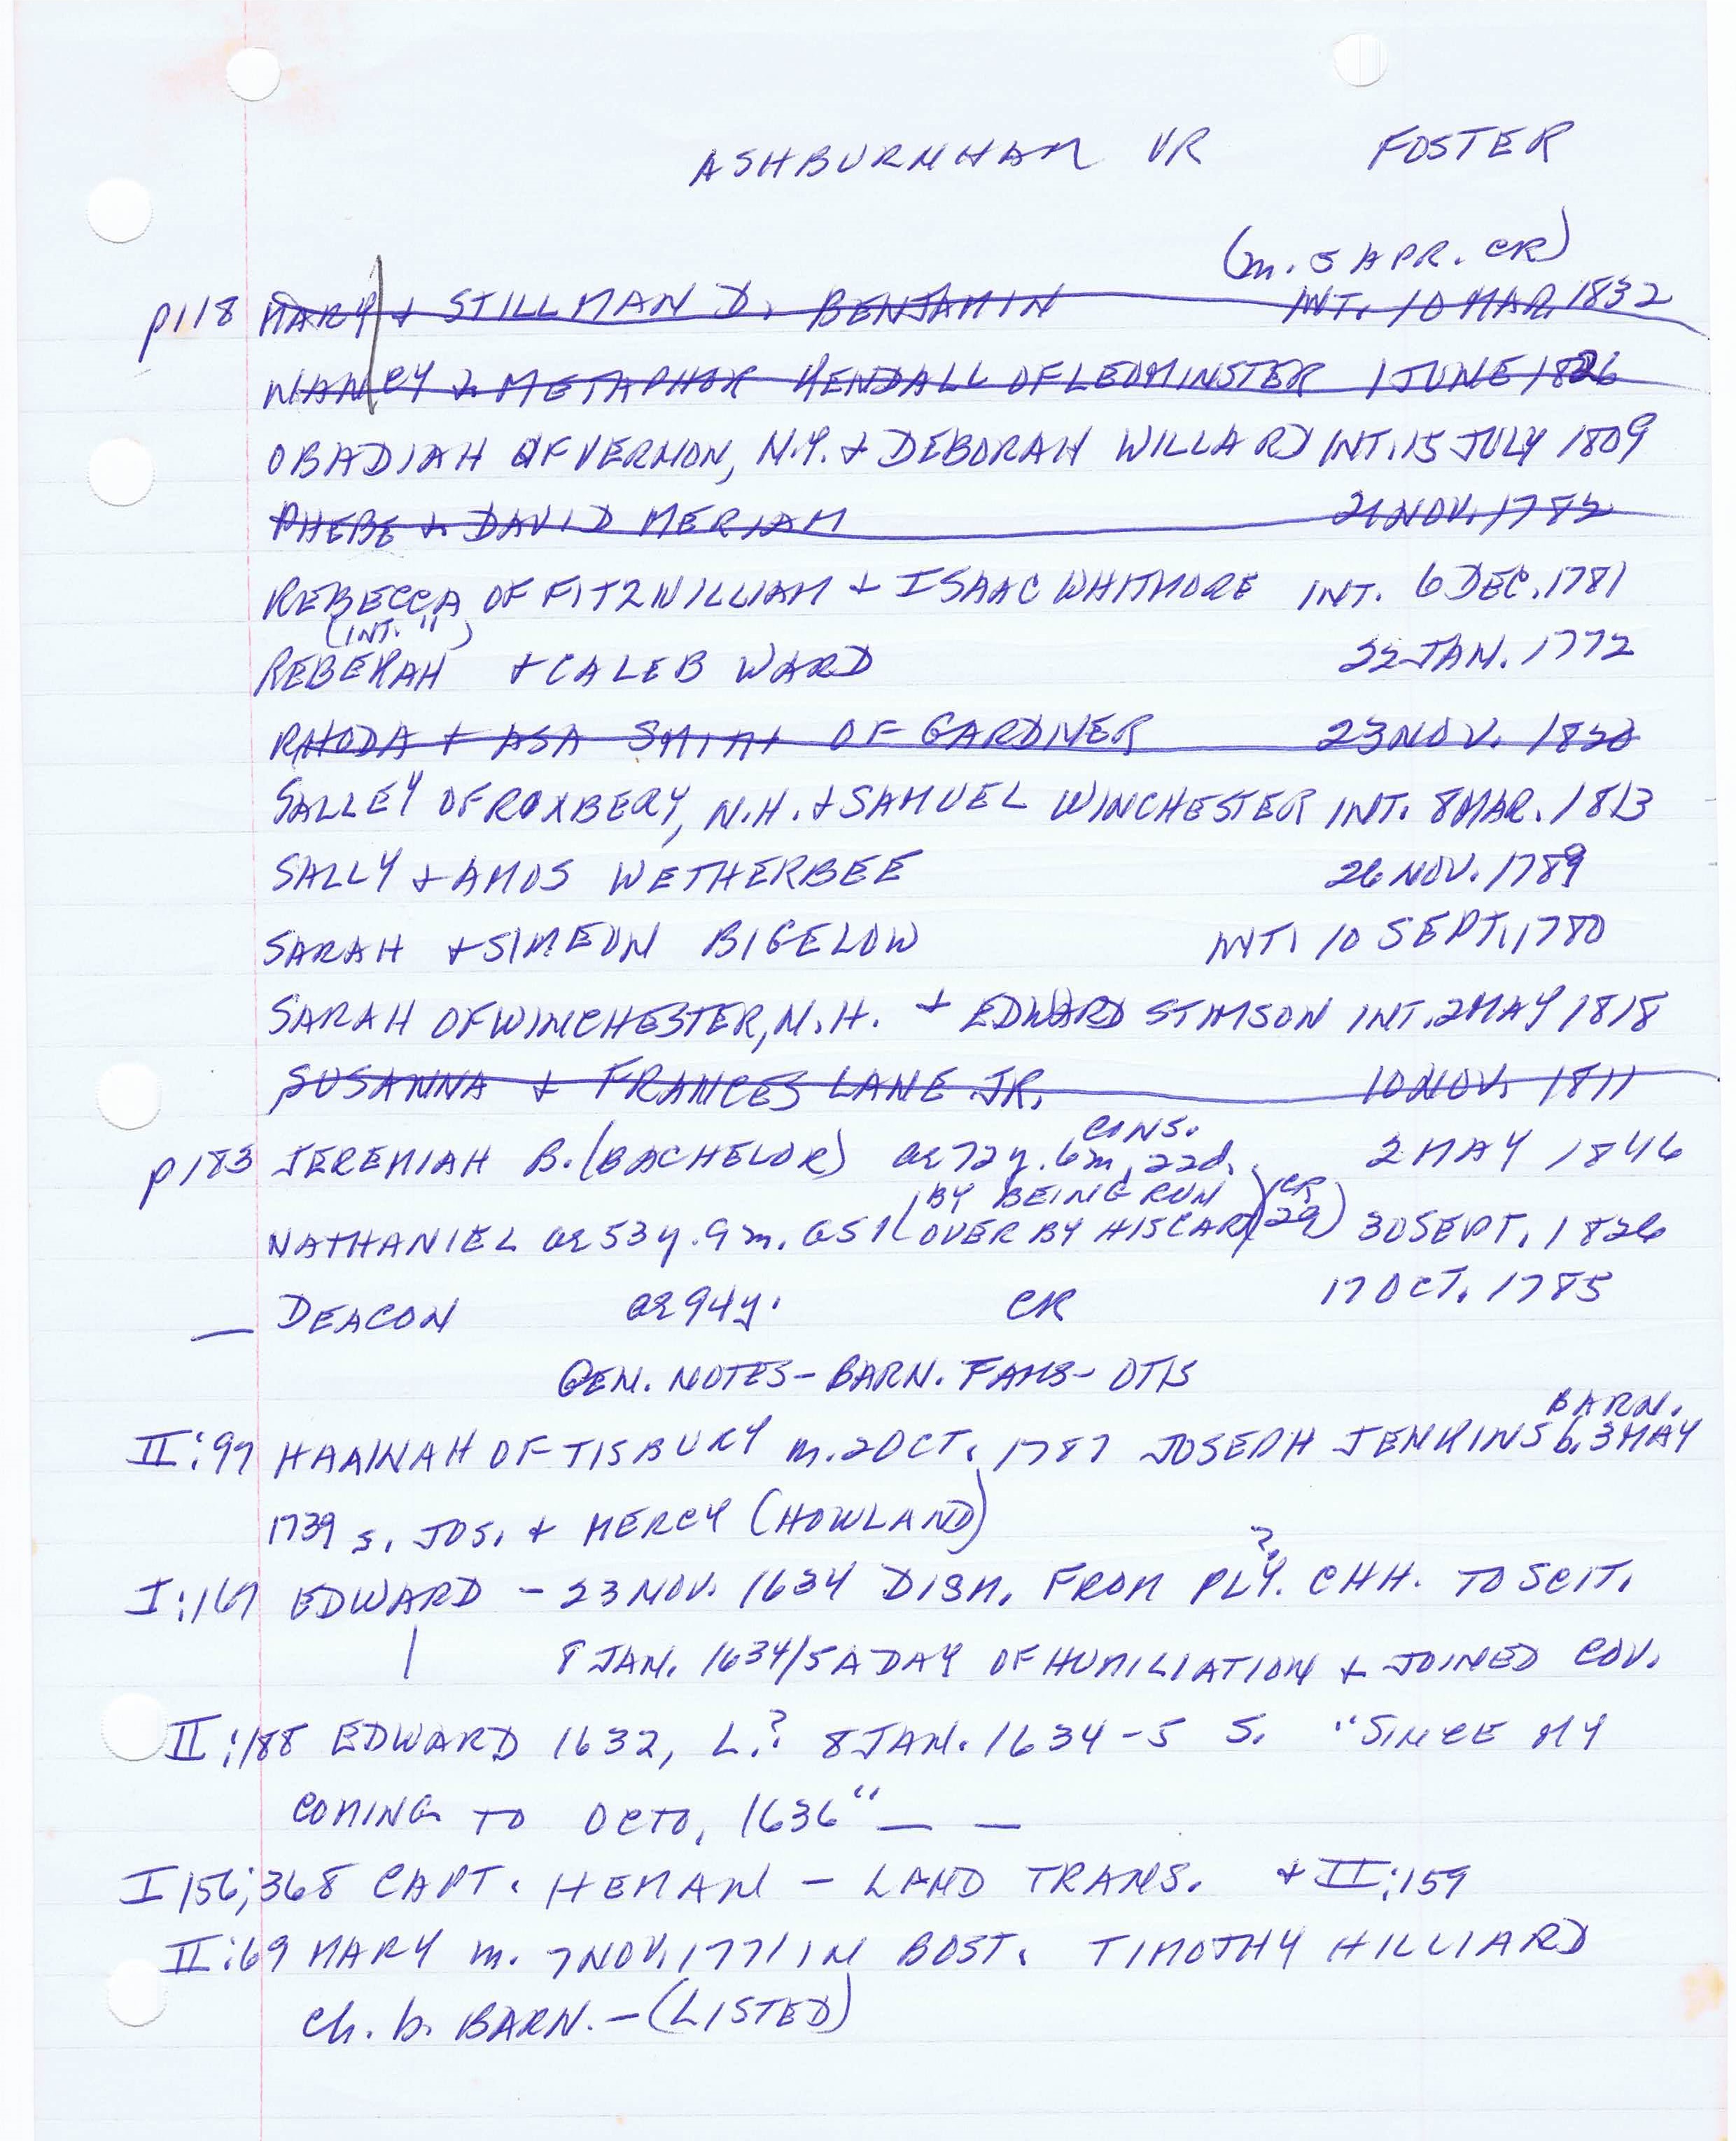 ASHBURNHAM VR FOSTER
(m. 5 APR. CR)
p118 MARY + STILLMAN D. BENJAMIN INT. 10 MAR. 1832
NANCY + METAPHOR KENDALL OF LEOMINSTER 1 JUNE 1826
OBADIAH OF VERNON, N.Y. + DEBORAH WILLARD INT. 15 JULY 1809
PHEBE + DAVID MERIAM 21 NOV. 1782
REBECCA OF FITZWILLIAM + ISAAC WHITMORE INT. 6 DEC. 1781
(INT. ")
REBEKAH + CALEB WARD 22 JAN. 1772
RHODA + ASA SMITH OF GARDNER 23 NOV. 1820
SALLEY OF ROXBERY, N.H. + SAMUEL WINCHESTER INT. 8 MAR. 1813
SALLY + AMOS WETHERBEE 26 NOV. 1789
SARAH + SIMEON BIGELOW INT. 10 SEPT. 1780
SARAH OF WINCHESTER, N.H. + EDWARD STIMSON INT. 2 MAY 1818
SUSANNA + FRANCES LANE JR. 10 NOV. 1811
CONS.
p183 JEREMIAH B. (BACHELOR) ae 72y. 6m, 22d. 2 MAY 1846
(BY BEING RUN) (CR
NATHANIEL ae 53y. 9m. GS1 OVER BY HIS CART) 29) 30 SEPT. 1826
— DEACON ae 94y. CR 17 OCT. 1785
GEN. NOTES - BARN. FAMS - OTIS
BARN.
II:97 HANNAH OF TISBURY m. 2 OCT. 1787 JOSEPH JENKINS b. 3 MAY
1739 s. JOS. + MERCY (HOWLAND)
?
I:167 EDWARD - 23 NOV. 1634 DISM. FROM PLY. CHH. TO SCIT.
| 8 JAN. 1634/5 A DAY OF HUMILIATION + JOINED COV.
II:188 EDWARD 1632, L.? 8 JAN. 1634-5 S. "SINCE MY
COMING TO OCTO, 1636" — —
I 156; 368 CAPT. HEMAN - LAND TRANS. + II:159
II:69 MARY m. 7 NOV. 1771 IN BOST. TIMOTHY HILLIARD
ch. b. BARN. - (LISTED)